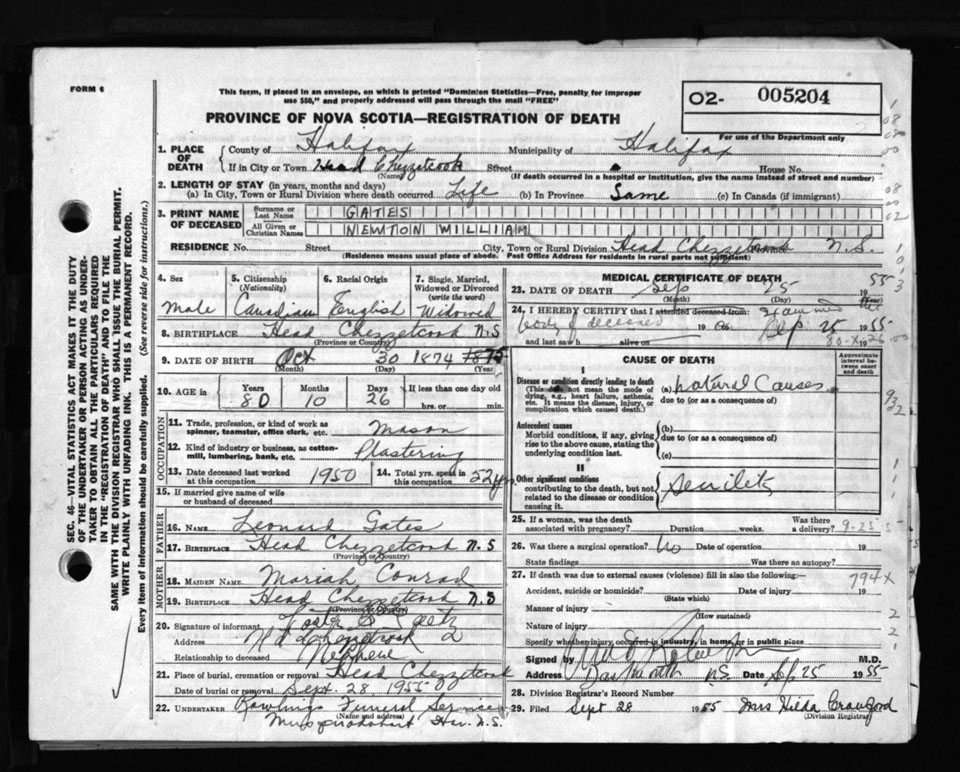 FORM 6
This form, if placed in an envelope, on which is printed "Dominion Statistics—Free, penalty for improper
use $50," and properly addressed will pass through the mail "FREE"
PROVINCE OF NOVA SCOTIA—REGISTRATION OF DEATH
02- 005204
For use of the Department only
1. PLACE OF DEATH
County of Halifax Municipality of Halifax
If in City or Town Head Chezzetcook Street House No.
(Name) (If death occurred in a hospital or institution, give the name instead of street and number)
2. LENGTH OF STAY (in years, months and days)
(a) In City, Town or Rural Division where death occurred Life (b) In Province Same (c) In Canada (if immigrant)
3. PRINT NAME OF DECEASED
Surname or Last Name GATES
All Given or Christian Names NEWTON WILLIAM
RESIDENCE No. Street City, Town or Rural Division Head Chezzetcook N.S.
(Residence means usual place of abode. Post Office Address for residents in rural parts not sufficient)
4. Sex Male
5. Citizenship (Nationality) Canadian
6. Racial Origin English
7. Single, Married, Widowed or Divorced (write the word) Widowed
8. BIRTHPLACE Head Chezzetcook N.S
(Province or Country)
9. DATE OF BIRTH Oct 30 1874 1875
(Month) (Day) (Year)
10. AGE in Years Months Days If less than one day old
80 10 26 hrs. or min.
OCCUPATION
11. Trade, profession, or kind of work as spinner, teamster, office clerk, etc. Mason
12. Kind of industry or business, as cotton-mill, lumbering, bank, etc. Plastering
13. Date deceased last worked at this occupation 1950
14. Total yrs. spent in this occupation 52 yrs.
15. If married give name of wife or husband of deceased
FATHER
16. NAME Leonard Gates
17. BIRTHPLACE Head Chezzetcook N.S
(Province or Country)
MOTHER
18. MAIDEN NAME Mariah Conrad
19. BIRTHPLACE Head Chezzetcook N.S
(Province or Country)
20. Signature of informant
Address Chezzetcook
Relationship to deceased
21. Place of burial, cremation or removal Head Chezzetcook
Date of burial or removal Sept. 28, 1955
22. UNDERTAKER Rawlings Funeral Service
(Name and address) Musquodoboit Har. N.S.
MEDICAL CERTIFICATE OF DEATH
23. DATE OF DEATH Sep 25 1955
(Month) (Day) (Year)
24. I HEREBY CERTIFY that I attended deceased from: Examined the
body of deceased 19 on Sep 25 1955
and last saw h alive on 19
CAUSE OF DEATH
Approximate interval between onset and death
I
Disease or condition directly leading to death
(This does not mean the mode of dying, e.g., heart failure, asthenia, etc. It means the disease, injury, or complication which caused death.)
(a) Natural Causes
due to (or as a consequence of)
Antecedent causes
Morbid conditions, if any, giving rise to the above cause, stating the underlying condition last.
(b)
due to (or as a consequence of)
(c)
II
Other significant conditions
contributing to the death, but not related to the disease or condition causing it.
Senility
25. If a woman, was the death associated with pregnancy? Duration weeks. Was there a delivery? 9-25-5
26. Was there a surgical operation? No Date of operation 19
State findings Was there an autopsy?
27. If death was due to external causes (violence) fill in also the following:— 794X
Accident, suicide or homicide? Date of injury 19
(State which)
Manner of injury
(How sustained)
Nature of injury
Specify whether injury occurred in industry, in home, or in public place
Signed by M.D.
Address Dartmouth N.S. Date Sep 25 1955
28. Division Registrar's Record Number
29. Filed Sept 28 1955 Mrs Hilda Crawford
(Division Registrar)
SEC. 46—VITAL STATISTICS ACT MAKES IT THE DUTY
OF THE UNDERTAKER OR PERSON ACTING AS UNDER-
TAKER TO OBTAIN ALL THE PARTICULARS REQUIRED
IN THE "REGISTRATION OF DEATH" AND TO FILE THE
SAME WITH THE DIVISION REGISTRAR WHO SHALL ISSUE THE BURIAL PERMIT.
WRITE PLAINLY WITH UNFADING INK. THIS IS A PERMANENT RECORD.
Every item of information should be carefully supplied. (See reverse side for instructions.)